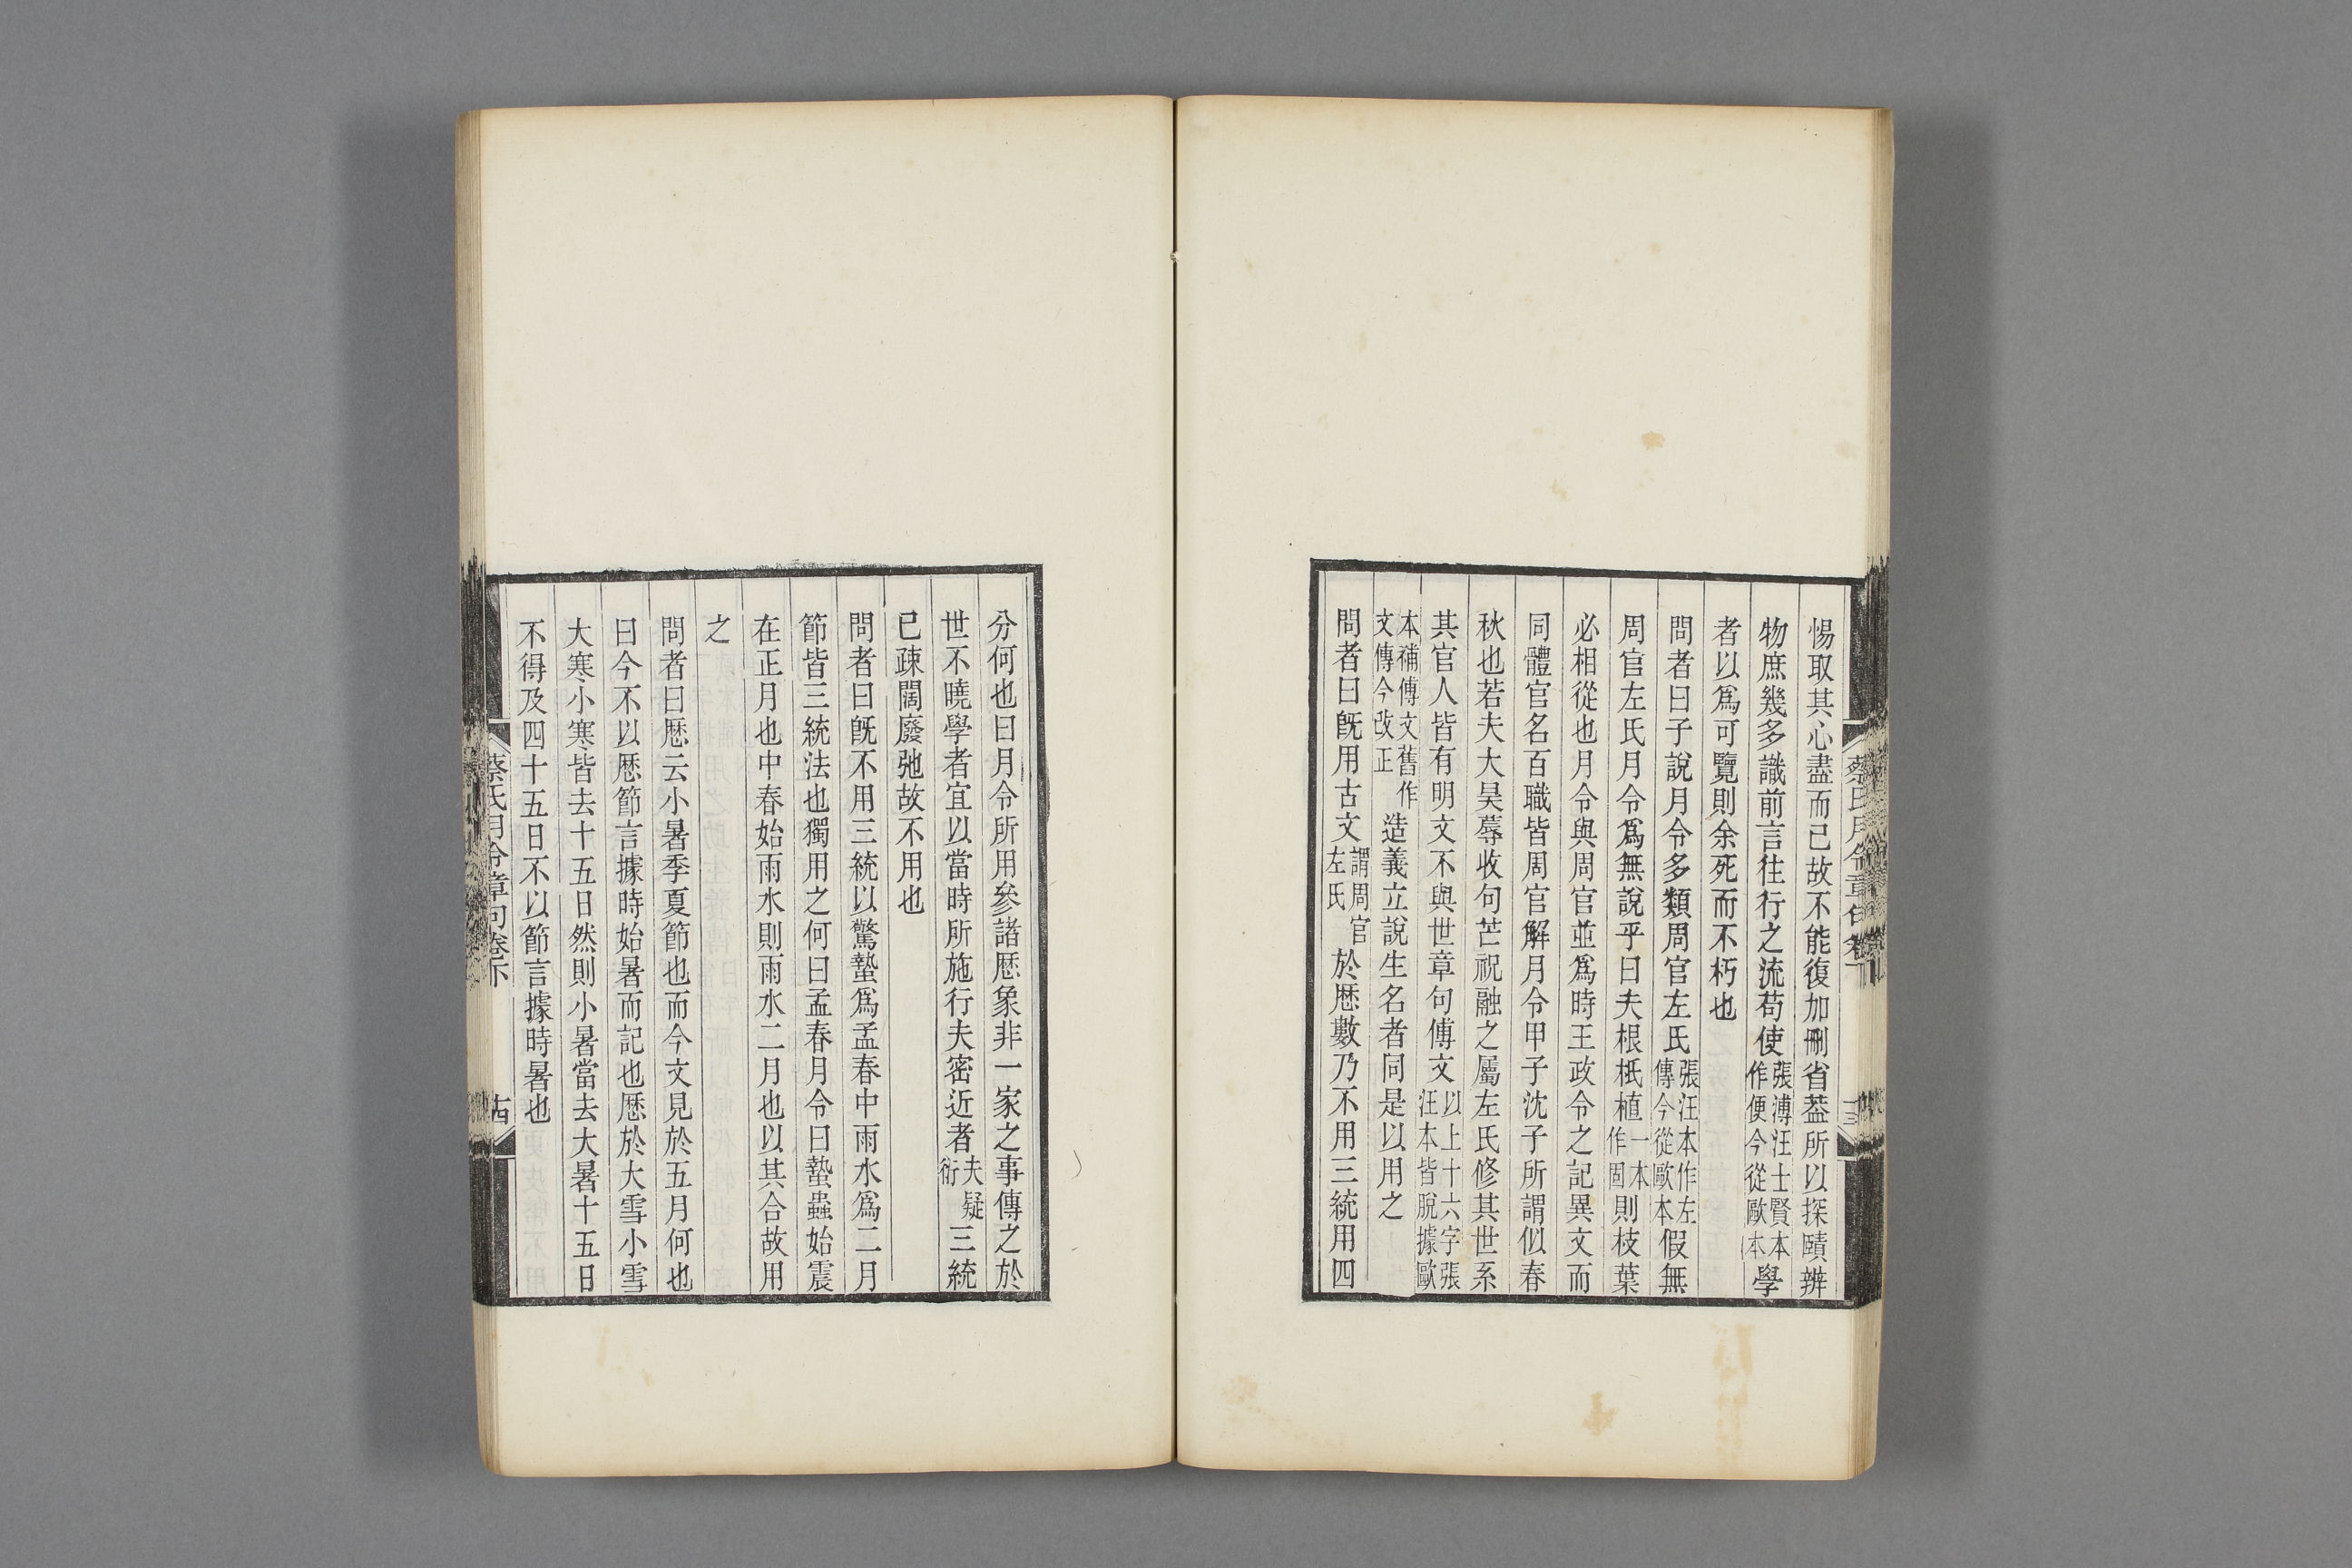 惕取其心盡而已故不能復加刪省葢所以探賾辨
物庶幾多識前言往行之流苟使張溥汪士賢本作便今從歐本學
者以爲可覽則余死而不朽也
問者曰子說月令多類周官左氏張汪本作左傳今從歐本假無
周官左氏月令爲無說乎曰夫根柢植一本作固則枝葉
必相從也月令與周官並爲時王政令之記異文而
同體官名百職皆周官解月令甲子沈子所謂似春
秋也若夫大昊蓐收句芒祝融之屬左氏修其世系
其官人皆有明文不與世章句傅文以上十六字張汪本皆脫據歐
本補傅文舊作文傳今改正造義立說生名者同是以用之
問者曰旣用古文謂周官左氏於厯數乃不用三統用四
蔡氏月令章句卷下
十三
分何也曰月令所用參諸厯象非一家之事傳之於
世不曉學者宜以當時所施行夫密近者夫疑衍三統
已疎闊廢弛故不用也
問者曰旣不用三統以驚蟄爲孟春中雨水爲二月
節皆三統法也獨用之何曰孟春月令曰蟄蟲始震
在正月也中春始雨水則雨水二月也以其合故用
之
問者曰厯云小暑季夏節也而今文見於五月何也
曰今不以厯節言據時始暑而記也厯於大雪小雪
大寒小寒皆去十五日然則小暑當去大暑十五日
不得及四十五日不以節言據時暑也
蔡氏月令章句卷下
十四